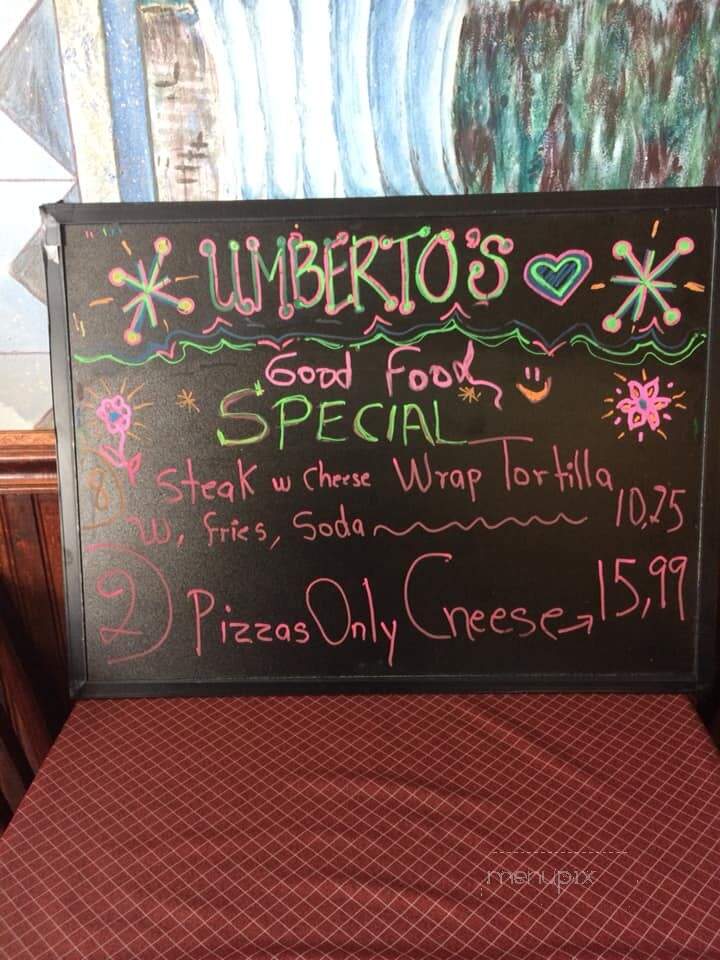 UMBERTO'S
Good Food
SPECIAL
Steak w Cheese Wrap Tortilla
W, fries, Soda 10,25
2) Pizzas Only Cheese → 15,99
menupix